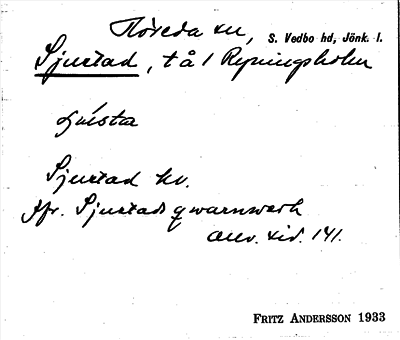 Höreda sn, S. Vedbo hd, Jönk. l.
Sjustad, t å l Ryningsholm
Sjustad kv.
Jfr. Sjustads qwarnwerk
anv. sid. 141.
FRITZ ANDERSSON 1933